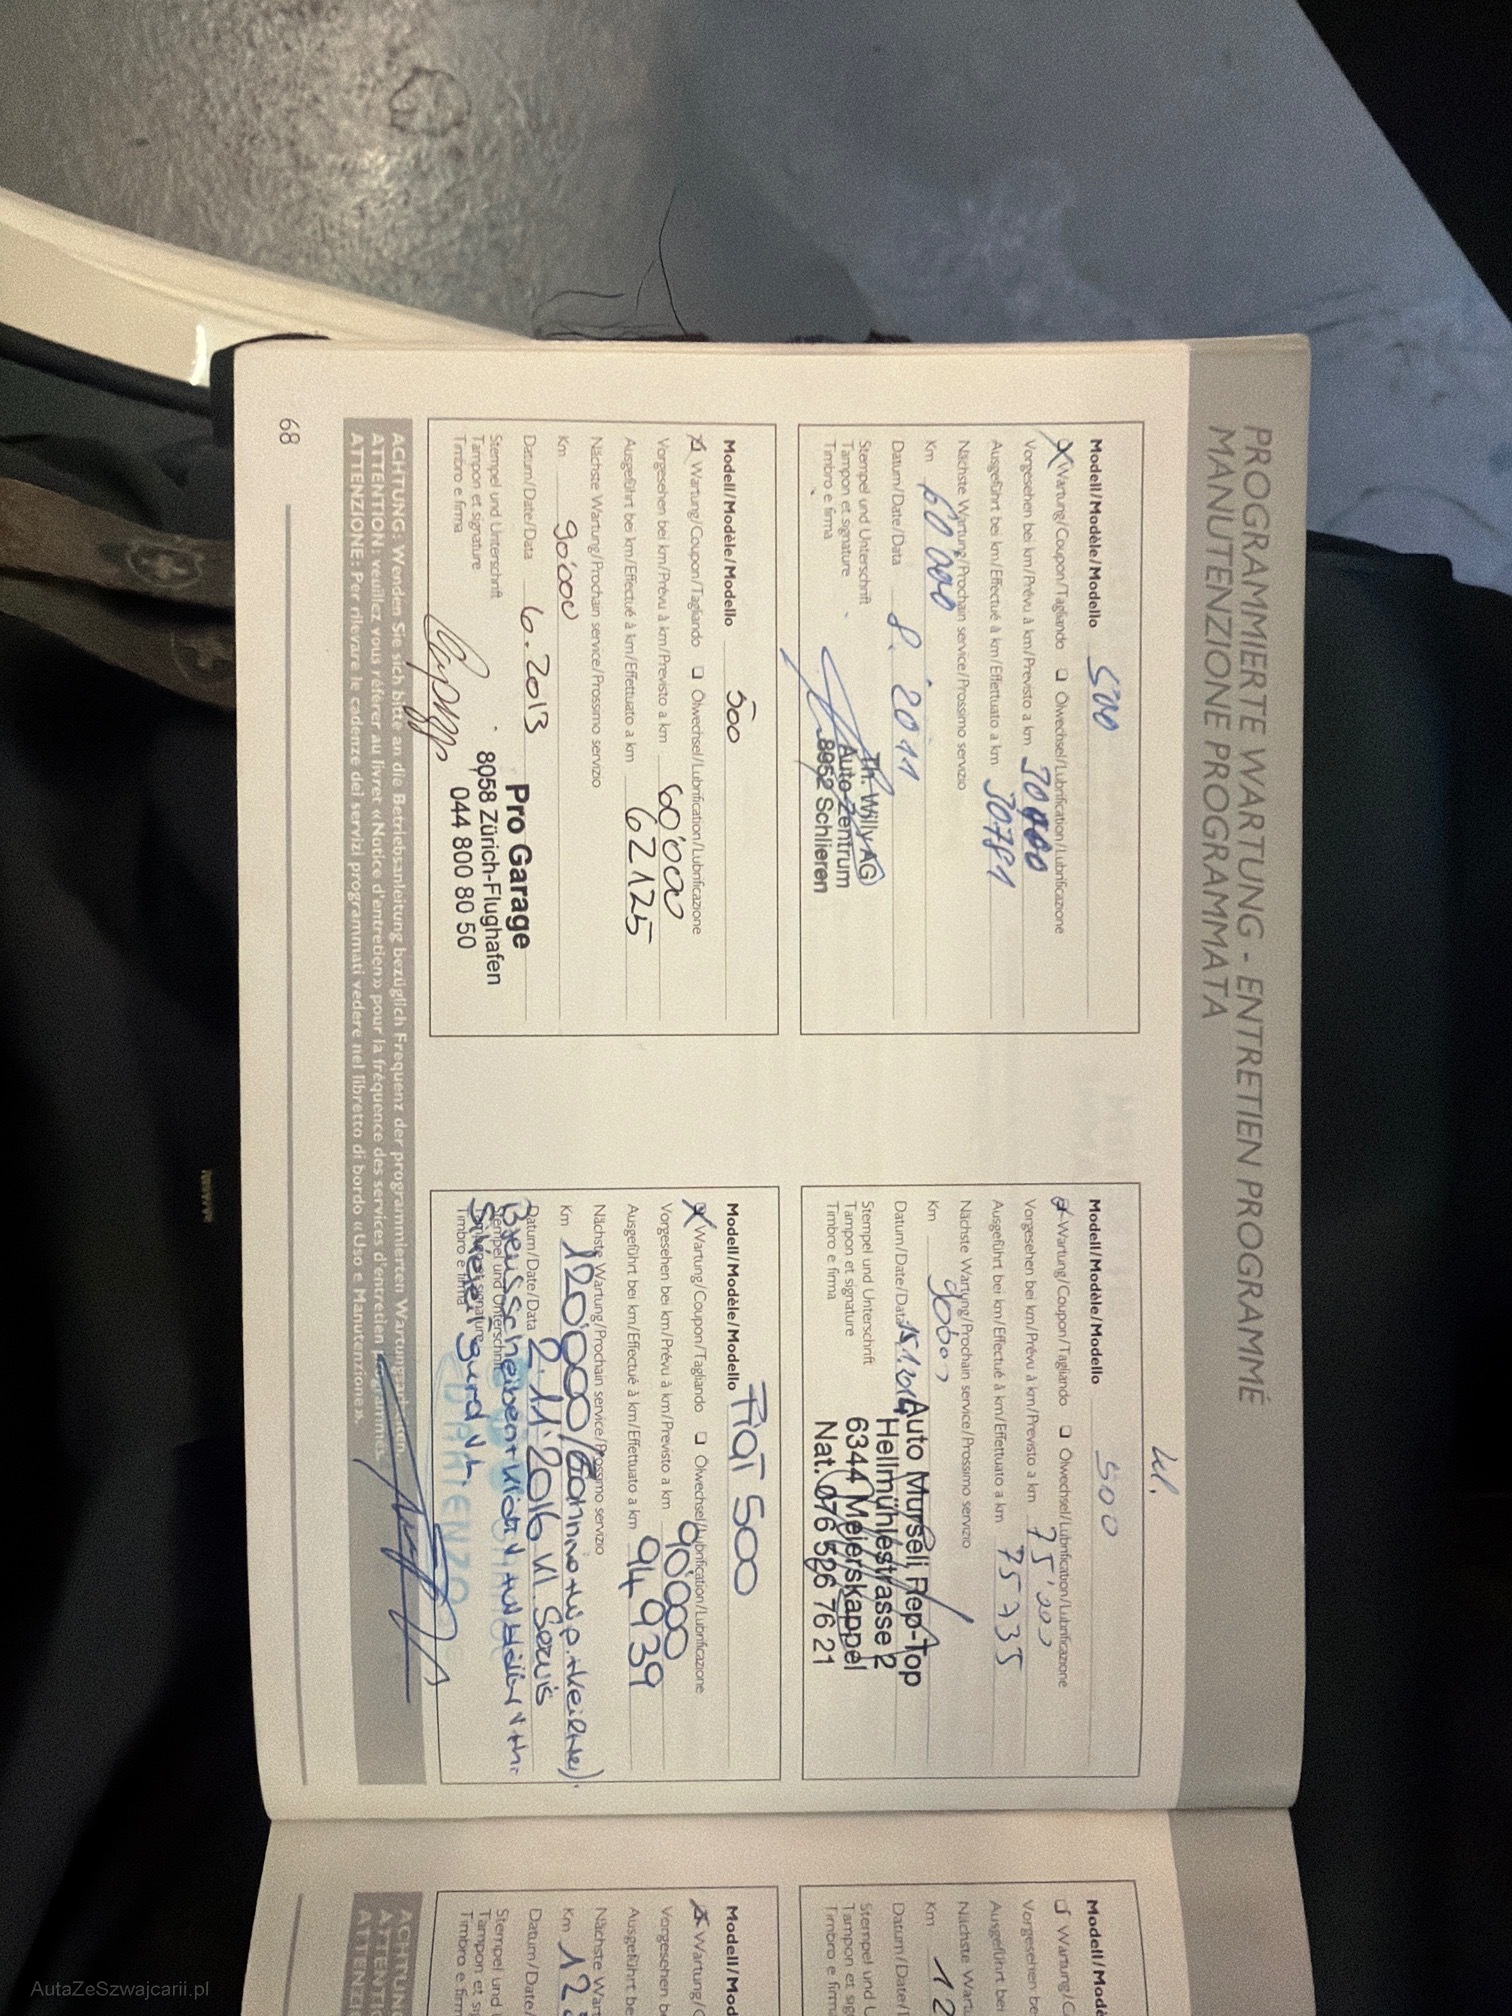 PROGRAMMIERTE WARTUNG - ENTRETIEN PROGRAMMÉ
MANUTENZIONE PROGRAMMATA
Modell/Modèle/Modello 500
Wartung/Coupon/Tagliando Ölwechsel/Lubrification/Lubrificazione
Vorgesehen bei km/Prévu à km/Previsto a km 30000
Ausgeführt bei km/Effectué à km/Effettuato a km 30781
Nächste Wartung/Prochain service/Prossimo servizio
Km 60000
Datum/Date/Data 8. 2011
Stempel und Unterschrift
Tampon et signature
Timbro e firma
Th. Willy AG
Auto-Zentrum
8952 Schlieren
Modell/Modèle/Modello 500
Wartung/Coupon/Tagliando Ölwechsel/Lubrification/Lubrificazione
Vorgesehen bei km/Prévu à km/Previsto a km 60'000
Ausgeführt bei km/Effectué à km/Effettuato a km 62125
Nächste Wartung/Prochain service/Prossimo servizio
Km 90'000
Datum/Date/Data 6. 2013
Stempel und Unterschrift
Tampon et signature
Timbro e firma
Pro Garage
8058 Zürich-Flughafen
044 800 80 50
Modell/Modèle/Modello 500
Wartung/Coupon/Tagliando Ölwechsel/Lubrification/Lubrificazione
Vorgesehen bei km/Prévu à km/Previsto a km 75'000
Ausgeführt bei km/Effectué à km/Effettuato a km 75735
Nächste Wartung/Prochain service/Prossimo servizio
Km 90000
Datum/Date/Data 15.1.2014
Stempel und Unterschrift
Tampon et signature
Timbro e firma
Auto Murseli Rep-Top
Hellmühlestrasse 2
6344 Meierskappel
Nat. 076 526 76 21
Modell/Modèle/Modello Fiat 500
Wartung/Coupon/Tagliando Ölwechsel/Lubrification/Lubrificazione
Vorgesehen bei km/Prévu à km/Previsto a km 90'000
Ausgeführt bei km/Effectué à km/Effettuato a km 94939
Nächste Wartung/Prochain service/Prossimo servizio
Km 120'000
Datum/Date/Data 2.11.2016 Kl. Servis
Stempel und Unterschrift
Timbro e firma
ACHTUNG: Wenden Sie sich bitte an die Betriebsanleitung bezüglich Frequenz der programmierten Wartungsarbeiten.
ATTENTION: veuillez vous référer au livret «Notice d'entretien» pour la fréquence des services d'entretien programmés.
ATTENZIONE: Per rilevare le cadenze dei servizi programmati vedere nel libretto di bordo «Uso e Manutenzione».
68
Modell/Mod
Wartung/C
Vorgesehen be
Ausgeführt bei
Nächste Wart
Km 12
Datum/Date/
Stempel und U
Tampon et si
Timbro e firm
Modell/Mod
Wartung/C
Vorgesehen be
Ausgeführt be
Nächste Wart
Km 12
Datum/Date/
Stempel und
Tampon et si
Timbro e firm
ACHTUNG
AutaZeSzwajcarii.pl